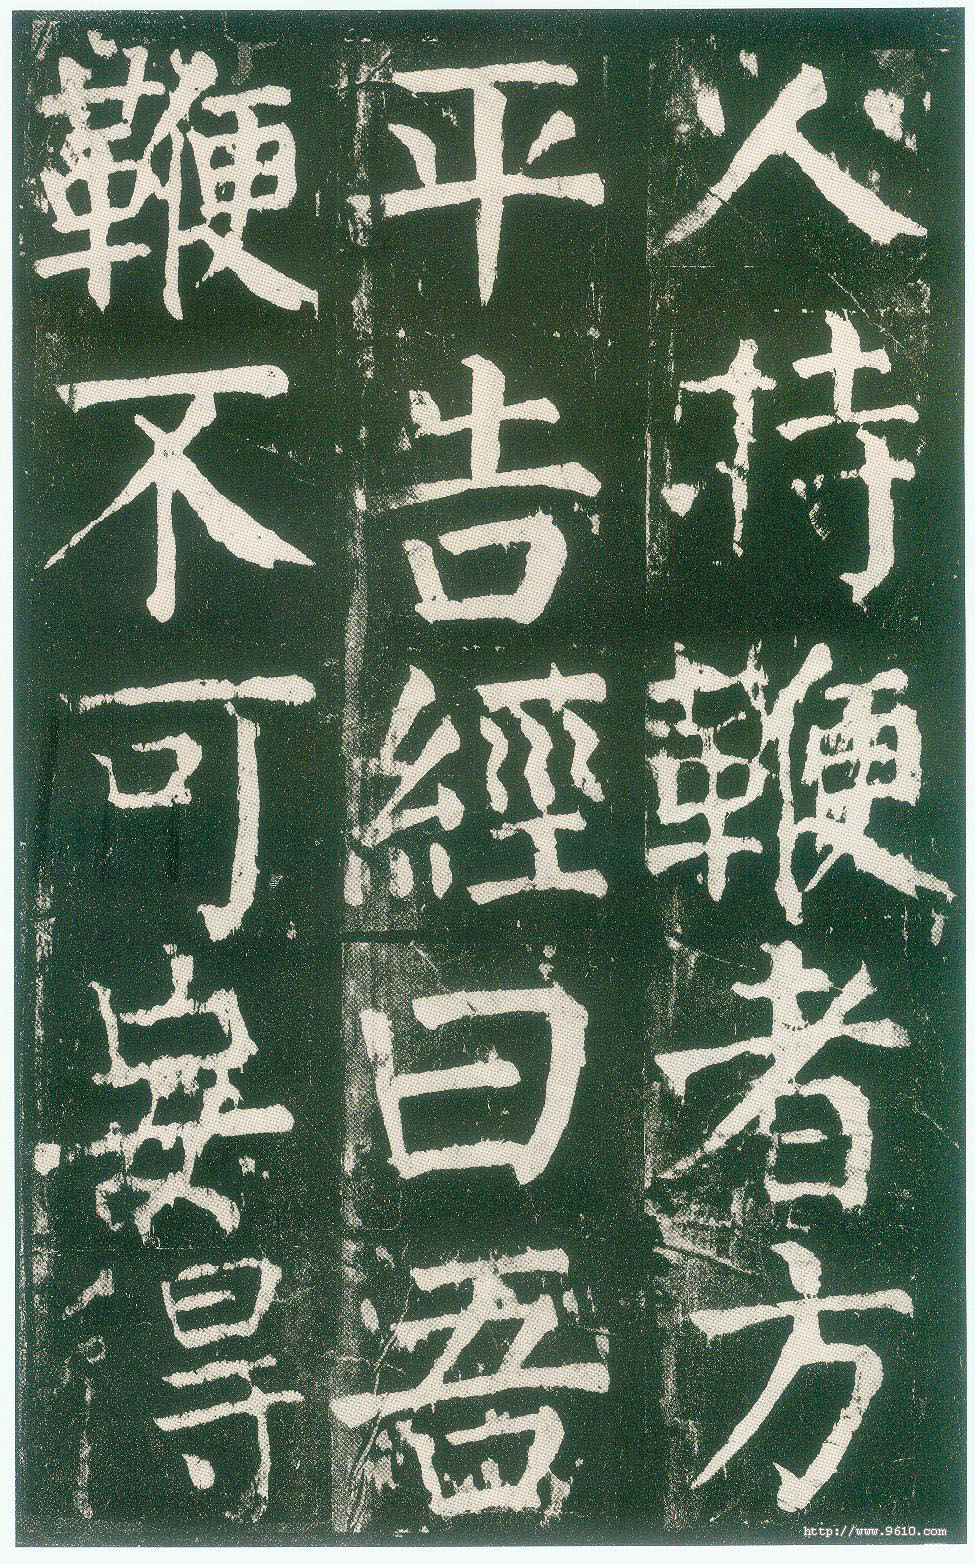 人持鞭者方
平告經曰吾
鞭不可妄得
http://www.9610.com